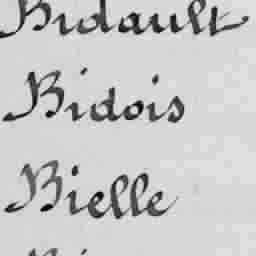 Bidault
Bidois
Bielle